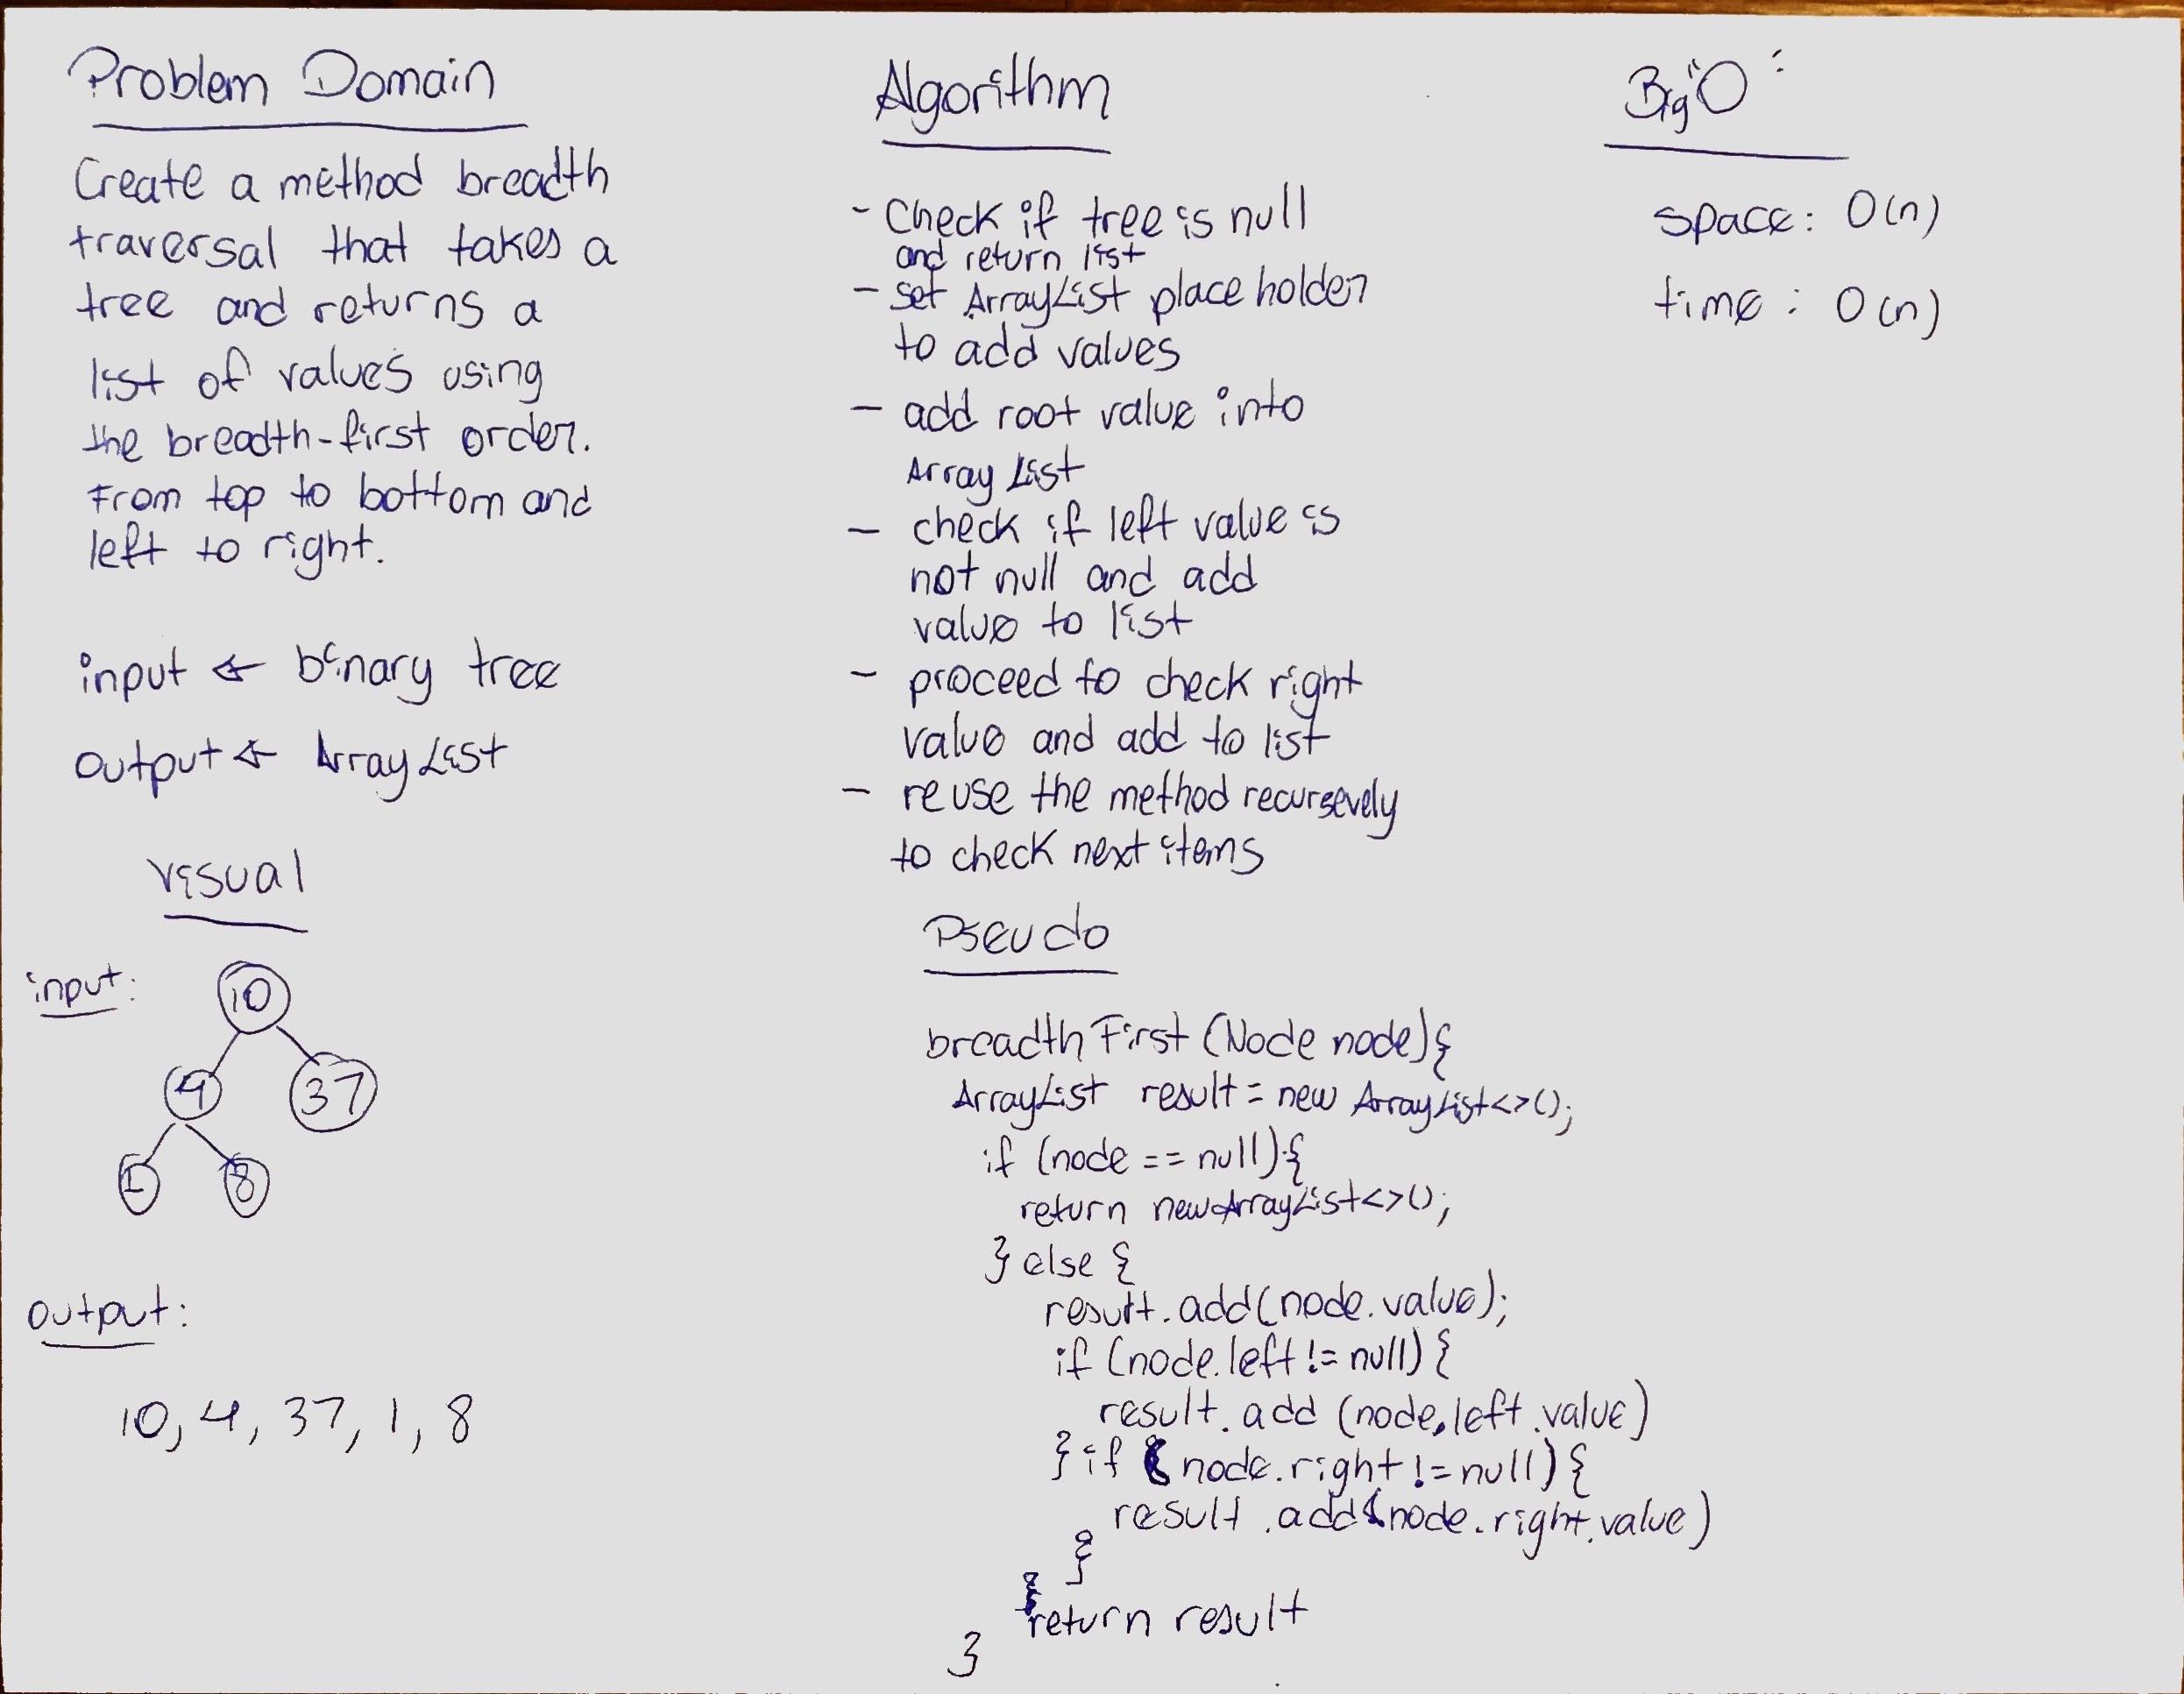 Problem Domain
Create a method breadth
traversal that takes a
tree and returns a
list of values using
the breadth-first order.
From top to bottom and
left to right.
input ← binary tree
output ← ArrayList
Visual
input:
10
4 37
1 8
output:
10, 4, 37, 1, 8
Algorithm
- Check if tree is null
and return list
- set ArrayList place holder
to add values
- add root value into
Array List
- check if left value is
not null and add
value to list
- proceed to check right
value and add to list
- reuse the method recursevely
to check next items
Pseudo
breadthFirst (Node node){
ArrayList result = new ArrayList<>();
if (node == null){
return new ArrayList<>();
} else {
result.add(node.value);
if (node.left != null) {
result.add (node.left.value)
} if (node.right != null) {
result.add(node.right.value)
}
}
return result
}
Big "O" :
space: O(n)
time : O(n)